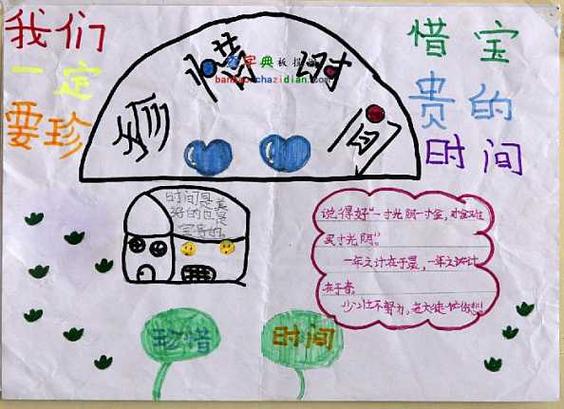 我们
一定
要珍
惜宝
贵的
时间
珍惜时间
查字典板报网
banbao.chazidian.com
时间是美
好的也是
宝贵的。
说得好“一寸光阴一寸金，寸金难
买寸光阴”。
一年之计在于
在于春。
少壮不努力，老大徒
珍惜
时间